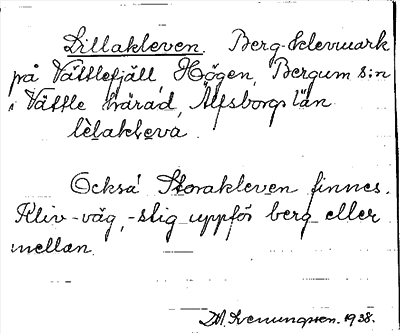 Lillakleven. Berg-klevmark
på Vättlefjäll, Högen, Bergum s:n
i Vättle härad, Älfsborgs län
lèlaklèva.
Också Storakleven finnes.
Kliv-väg, -stig uppför berg eller
mellan.
D.A. Svenungsson. 1938.